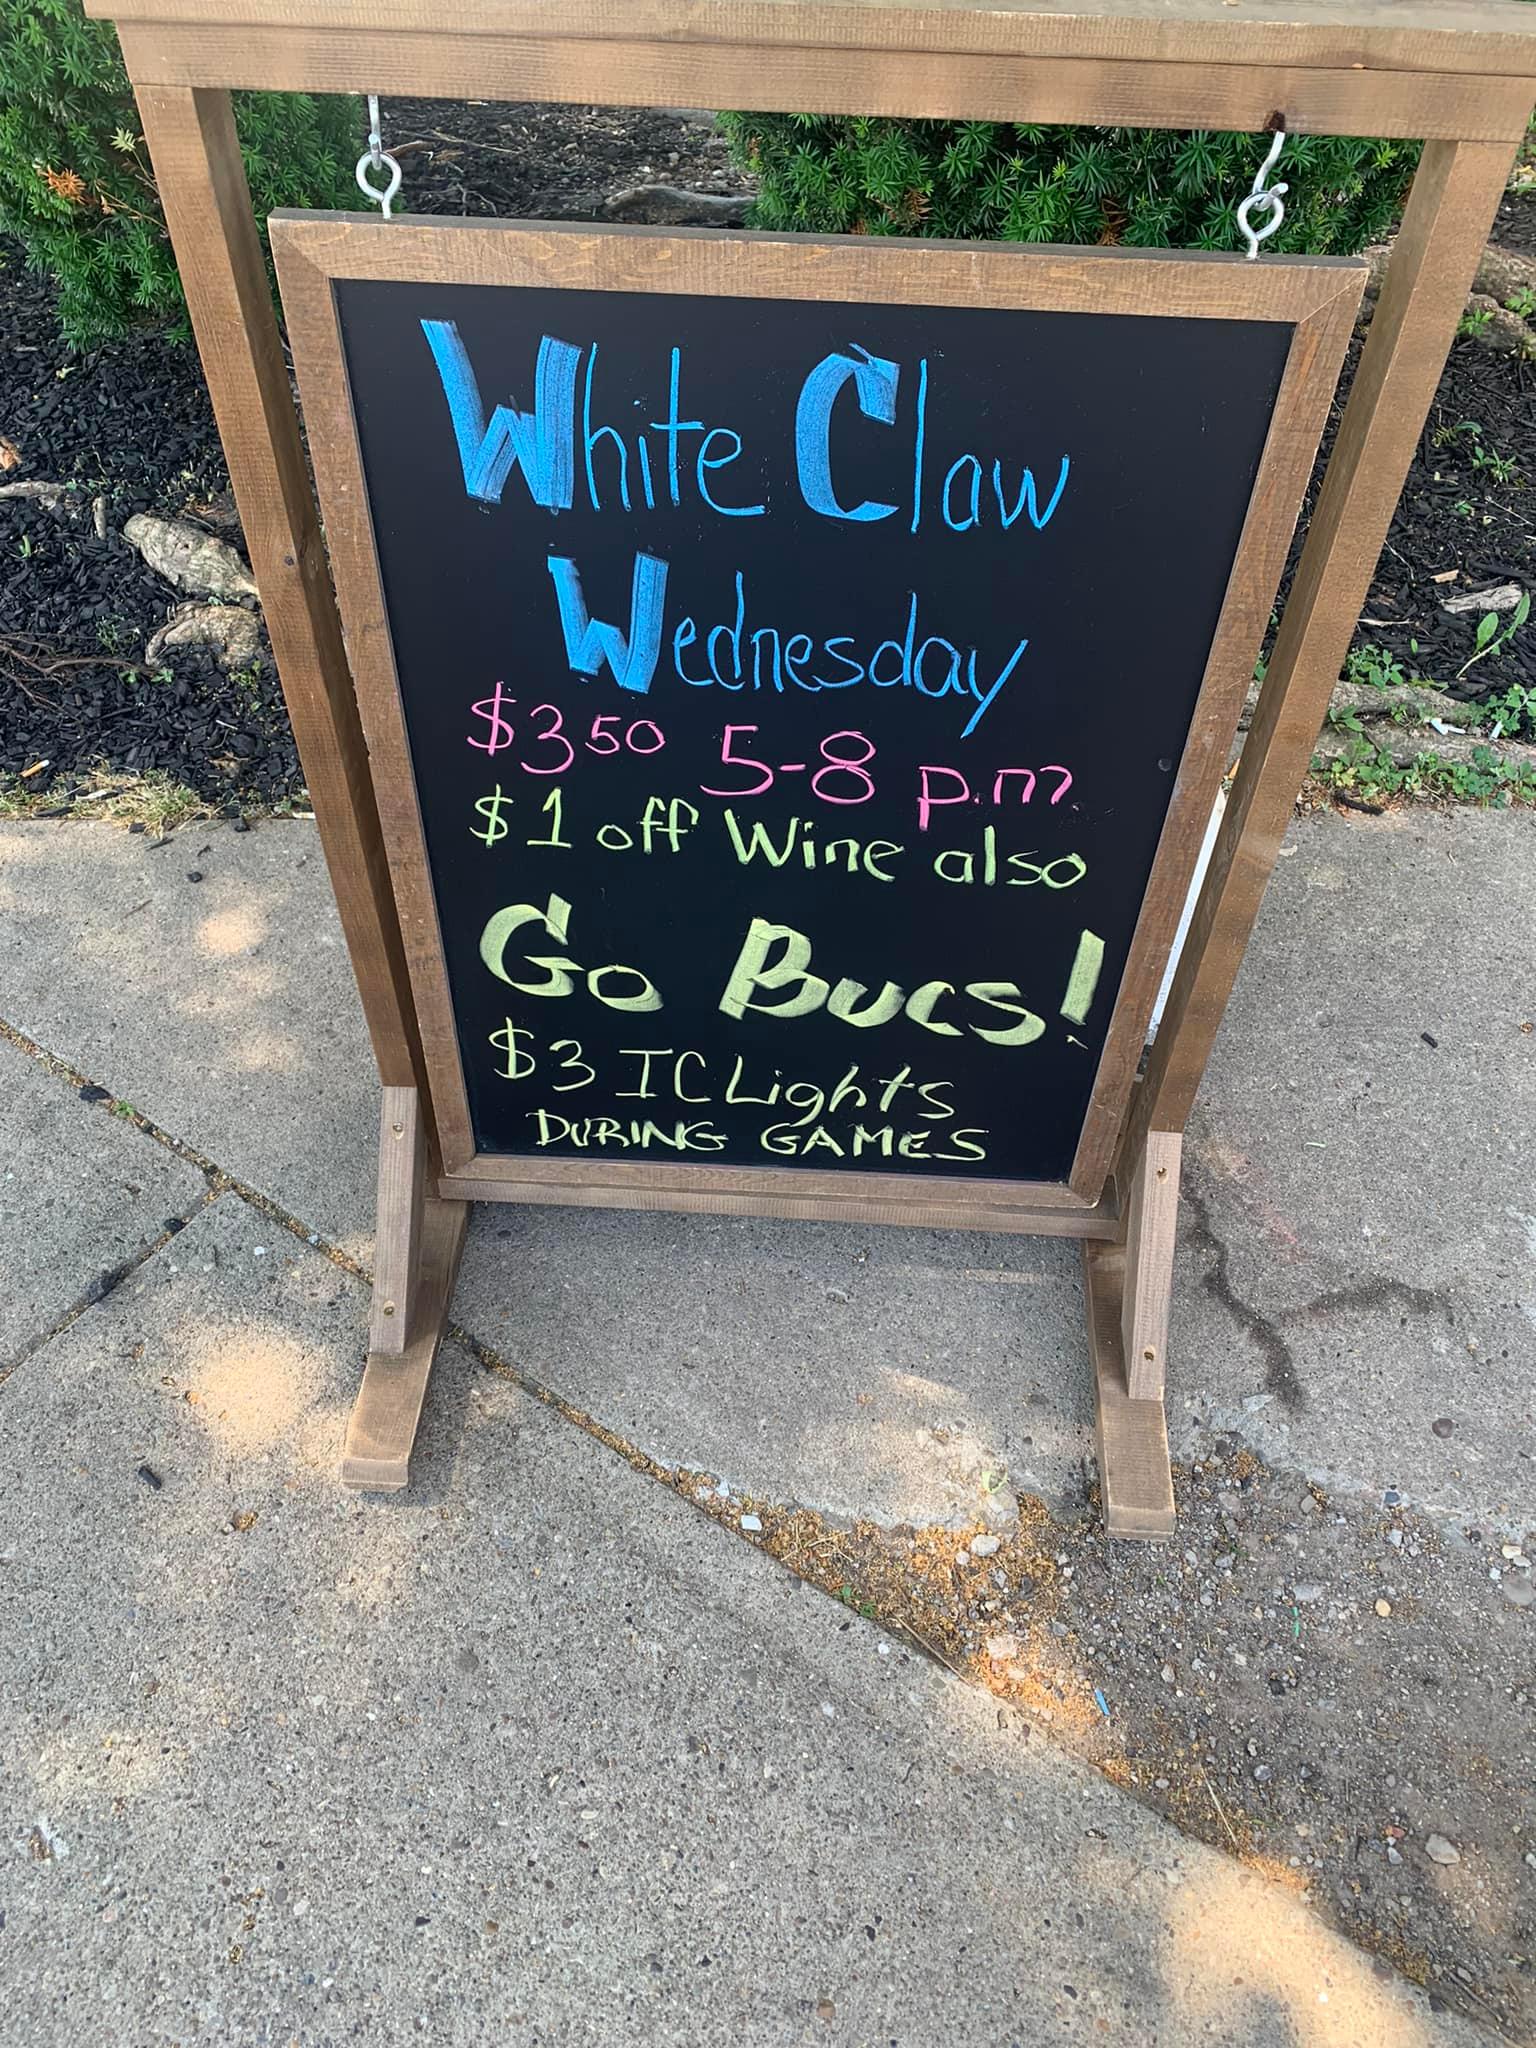 White Claw
Wednesday
$350 5-8 p.m.
$1 off Wine also
Go Bucs!
$3 IC Lights
DURING GAMES